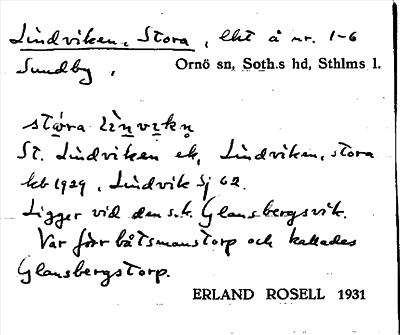 Lindviken, Stora, lht å nr. 1-6
Sundby, Ornö sn, Soth.s hd, Sthlms l.
stóra lìnvıkn̥
St. Lindviken ek, Lindviken, stora
kb 1929, Lindvik Sj 62.
Ligger vid den s.k. Glansbergsvik.
Var förr båtsmanstorp och kallades
Glansbergstorp.
ERLAND ROSELL 1931